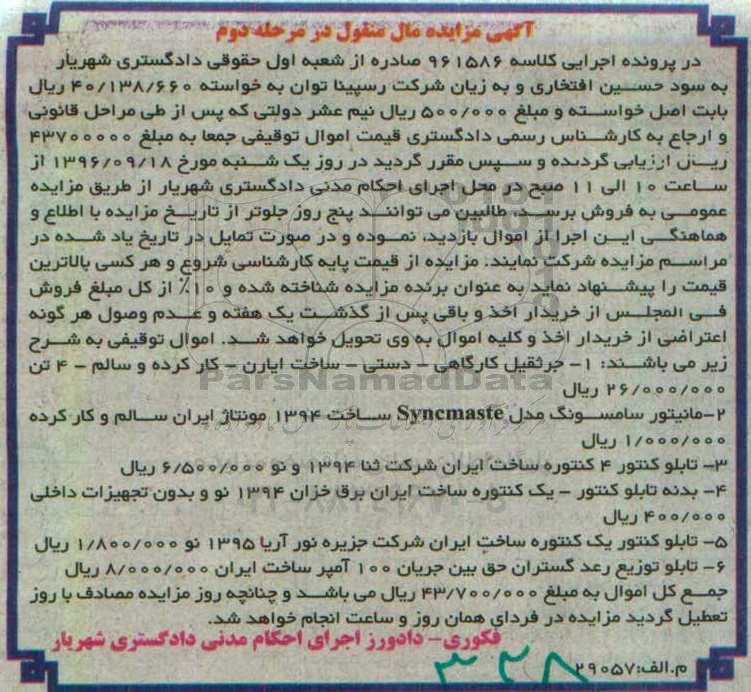 آگهی مزایده مال منقول در مرحله دوم
در پرونده اجرایی کلاسه ۹۶۱۵۸۶ صادره از شعبه اول حقوقی دادگستری شهریار
به سود حسین افتخاری و به زیان شرکت رسپینا توان به خواسته ۴۰/۱۳۸/۶۶۰ ریال
بابت اصل خواسته و مبلغ ۵۰۰/۰۰۰ ریال نیم عشر دولتی که پس از طی مراحل قانونی
و ارجاع به کارشناس رسمی دادگستری قیمت اموال توقیفی جمعا به مبلغ ۴۳۷۰۰۰۰۰
ریال ارزیابی گردیده و سپس مقرر گردید در روز یک شنبه مورخ ۱۳۹۶/۰۹/۱۸ از
ساعت ۱۰ الی ۱۱ صبح در محل اجرای احکام مدنی دادگستری شهریار از طریق مزایده
عمومی به فروش برسد. طالبین می توانند پنج روز جلوتر از تاریخ مزایده با اطلاع و
هماهنگی این اجرا از اموال بازدید، نموده و در صورت تمایل در تاریخ یاد شده در
مراسم مزایده شرکت نمایند. مزایده از قیمت پایه کارشناسی شروع و هر کسی بالاترین
قیمت را پیشنهاد نماید به عنوان برنده مزایده شناخته شده و ۱۰٪ از کل مبلغ فروش
فی المجلس از خریدار اخذ و باقی پس از گذشت یک هفته و عدم وصول هر گونه
اعتراضی از خریدار اخذ و کلیه اموال به وی تحویل خواهد شد. اموال توقیفی به شرح
زیر می باشند: ۱- جرثقیل کارگاهی - دستی - ساخت ایارن - کار کرده و سالم - ۴ تن
۲۶/۰۰۰/۰۰۰ ریال
ParsNamadData
۲-مانیتور سامسونگ مدل Syncmaste ساخت ۱۳۹۴ مونتاژ ایران سالم و کار کرده
۱/۰۰۰/۰۰۰ ریال
۳- تابلو کنتور ۴ کنتوره ساخت ایران شرکت ثنا ۱۳۹۴ و نو ۶/۵۰۰/۰۰۰ ریال
۴- بدنه تابلو کنتور - یک کنتوره ساخت ایران برق خزان ۱۳۹۴ نو و بدون تجهیزات داخلی
۴۰۰/۰۰۰ ریال
۵- تابلو کنتور یک کنتوره ساخت ایران شرکت جزیره نور آریا ۱۳۹۵ نو ۱/۸۰۰/۰۰۰ ریال
۶- تابلو توزیع رعد گستران حق بین جریان ۱۰۰ آمپر ساخت ایران ۸/۰۰۰/۰۰۰ ریال
جمع کل اموال به مبلغ ۴۳/۷۰۰/۰۰۰ ریال می باشد و چنانچه روز مزایده مصادف با روز
تعطیل گردید مزایده در فردای همان روز و ساعت انجام خواهد شد.
فکوری- دادورز اجرای احکام مدنی دادگستری شهریار
م.الف:۲۹۰۵۷
۳۲۸